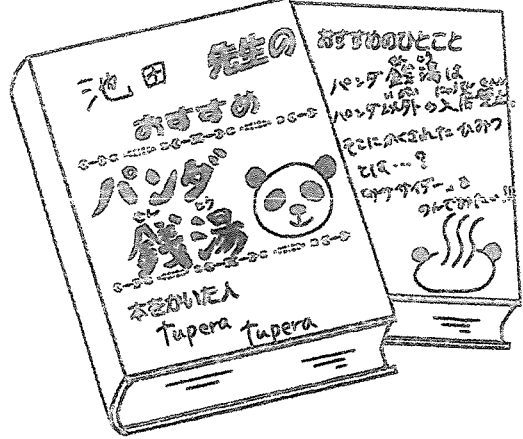 池田 先生の
おすすめ
パンダ
せん とう
銭湯
本をかいた人
tupera tupera
おすすめのひとこと
せん とう
パンダ銭湯は
パンダ以外の入店
そこにかくされた ひみつ
とは…?
サササイダー
のんでみたい!!